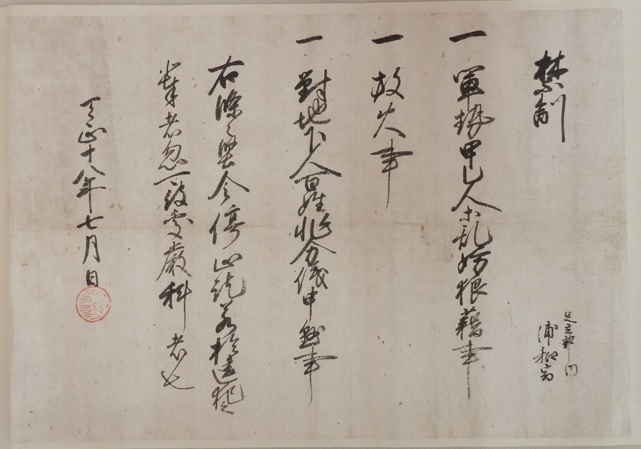 禁制
足立郡内
浦和宿
一 軍勢甲乙人等乱妨狼藉事
一 放火事
一 對地下人百姓非分儀申懸事
右條々堅令停止訖若於違犯
輩者忽可被處嚴科者也
天正十八年七月日